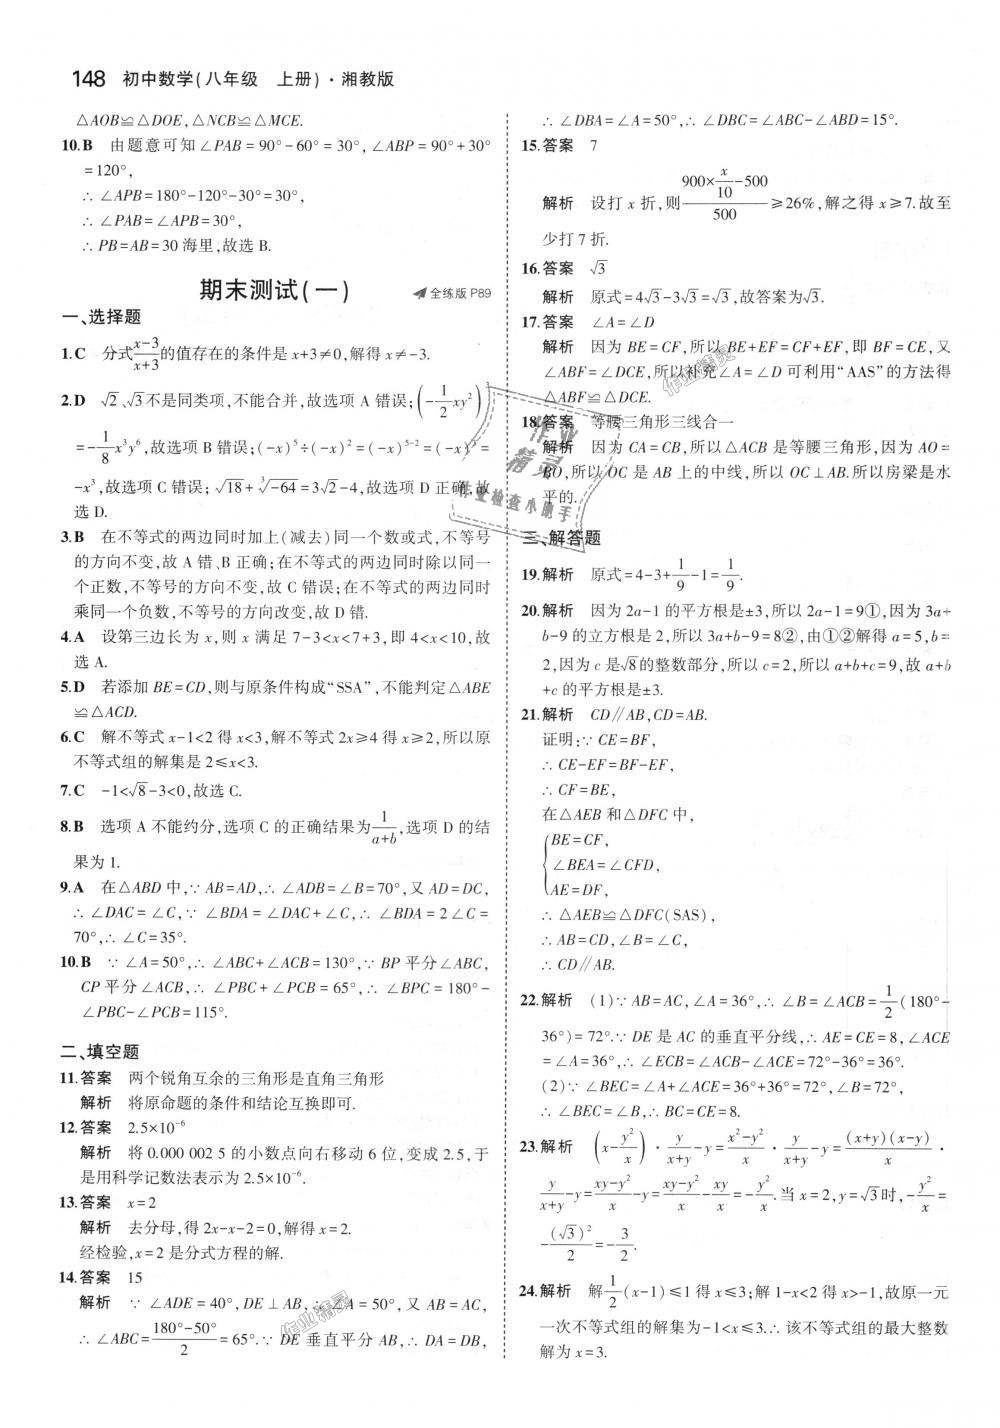 148 初中数学(八年级 上册)·湘教版
△AOB≌△DOE,△NCB≌△MCE.
10.B 由题意可知∠PAB=90°-60°=30°,∠ABP=90°+30°
=120°,
∴∠APB=180°-120°-30°=30°,
∴∠PAB=∠APB=30°,
∴PB=AB=30 海里,故选 B.
期末测试(一) 全练版 P89
一、选择题
1.C 分式(x-3)/(x+3)的值存在的条件是 x+3≠0,解得 x≠-3.
2.D √2、√3不是同类项,不能合并,故选项 A 错误;(-1/2xy²)³
=-1/8x³y⁶,故选项 B 错误;(-x)⁵÷(-x)²=(-x)⁵⁻²=(-x)³=
-x³,故选项 C 错误;√18+∛-64=3√2-4,故选项 D 正确,故
选 D.
3.B 在不等式的两边同时加上(减去)同一个数或式,不等号
的方向不变,故 A 错、B 正确;在不等式的两边同时除以同一
个正数,不等号的方向不变,故 C 错误;在不等式的两边同时
乘同一个负数,不等号的方向改变,故 D 错.
4.A 设第三边长为 x,则 x 满足 7-3<x<7+3,即 4<x<10,故
选 A.
5.D 若添加 BE=CD,则与原条件构成“SSA”,不能判定△ABE
≌△ACD.
6.C 解不等式 x-1<2 得 x<3,解不等式 2x≥4 得 x≥2,所以原
不等式组的解集是 2≤x<3.
7.C -1<√8-3<0,故选 C.
8.B 选项 A 不能约分,选项 C 的正确结果为1/(a+b),选项 D 的结
果为 1.
9.A 在△ABD 中,∵AB=AD,∴∠ADB=∠B=70°,又 AD=DC,
∴∠DAC=∠C,∵∠BDA=∠DAC+∠C,∴∠BDA=2∠C=
70°,∴∠C=35°.
10.B ∵∠A=50°,∴∠ABC+∠ACB=130°,∵BP 平分∠ABC,
CP 平分∠ACB,∴∠PBC+∠PCB=65°,∴∠BPC=180°-
∠PBC-∠PCB=115°.
二、填空题
11.答案 两个锐角互余的三角形是直角三角形
解析 将原命题的条件和结论互换即可.
12.答案 2.5×10⁻⁶
解析 将 0.000 002 5 的小数点向右移动 6 位,变成 2.5,于
是用科学记数法表示为 2.5×10⁻⁶.
13.答案 x=2
解析 去分母,得 2x-x-2=0,解得 x=2.
经检验,x=2 是分式方程的解.
14.答案 15
解析 ∵∠ADE=40°,DE⊥AB,∴∠A=50°,又 AB=AC,
∴∠ABC=(180°-50°)/2=65°.∵DE 垂直平分 AB,∴DA=DB,
∴∠DBA=∠A=50°,∴∠DBC=∠ABC-∠ABD=15°.
15.答案 7
解析 设打 x 折,则(900×x/10-500)/500≥26%,解之得 x≥7.故至
少打 7 折.
16.答案 √3
解析 原式=4√3-3√3=√3,故答案为√3.
17.答案 ∠A=∠D
解析 因为 BE=CF,所以 BE+EF=CF+EF,即 BF=CE,又
∠ABF=∠DCE,所以补充∠A=∠D 可利用“AAS”的方法得
△ABF≌△DCE.
18.答案 等腰三角形三线合一
解析 因为 CA=CB,所以△ACB 是等腰三角形,因为 AO=
BO,所以 OC 是 AB 上的中线,所以 OC⊥AB.所以房梁是水
平的.
三、解答题
19.解析 原式=4-3+1/9-1=1/9.
20.解析 因为 2a-1 的平方根是±3,所以 2a-1=9①,因为 3a+
b-9 的立方根是 2,所以 3a+b-9=8②,由①②解得 a=5,b=
2,因为 c 是√8的整数部分,所以 c=2,所以 a+b+c=9,故 a+b
+c 的平方根是±3.
21.解析 CD∥AB,CD=AB.
证明:∵CE=BF,
∴CE-EF=BF-EF,
∴CF=BE,
在△AEB 和△DFC 中,
{BE=CF,
∠BEA=∠CFD,
AE=DF,
∴△AEB≌△DFC(SAS),
∴AB=CD,∠B=∠C,
∴CD∥AB.
22.解析 (1)∵AB=AC,∠A=36°,∴∠B=∠ACB=1/2(180°-
36°)=72°.∵DE 是 AC 的垂直平分线,∴AE=CE=8,∠ACE
=∠A=36°,∴∠ECB=∠ACB-∠ACE=72°-36°=36°.
(2)∵∠BEC=∠A+∠ACE=36°+36°=72°,∠B=72°,
∴∠BEC=∠B,∴BC=CE=8.
23.解析 (x-y²/x)·y/(x+y)-y=(x²-y²)/x·y/(x+y)-y=(x+y)(x-y)/x·
y/(x+y)-y=(xy-y²)/x-y=(xy-y²)/x-xy/x=-y²/x.当 x=2,y=√3时,-y²/x=
-(√3)²/2=-3/2.
24.解析 解1/2(x-1)≤1 得 x≤3;解 1-x<2 得 x>-1,故原一元
一次不等式组的解集为-1<x≤3.∴该不等式组的最大整数
解为 x=3.
作业
精灵
作业检查小助手
作业精灵
作业精灵